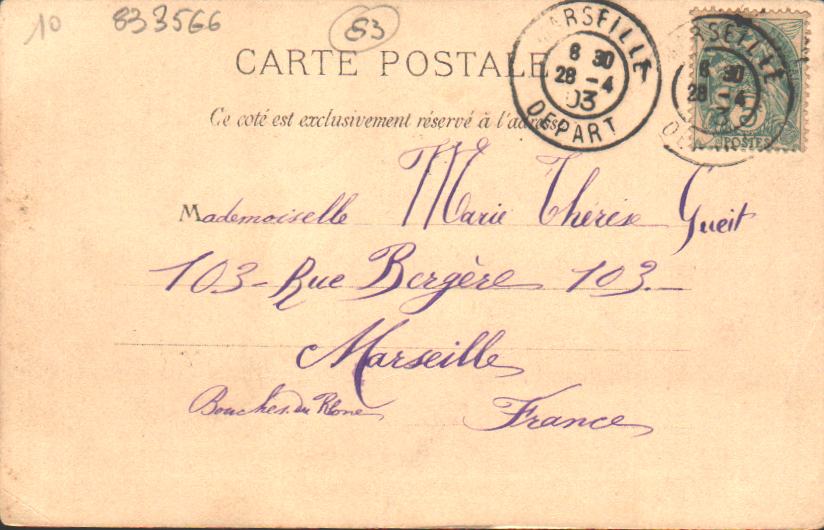 10 833566 53
CARTE POSTALE
MARSEILLE
8 30
28 - 4
03
DEPART
MARSEILLE
8 30
28 - 4
POSTES
Ce coté est exclusivement réservé à l'adresse
Mademoiselle Marie Thérèse Gueit
103 - Rue Bergère 103 -
Marseille
Bouches du Rhone France